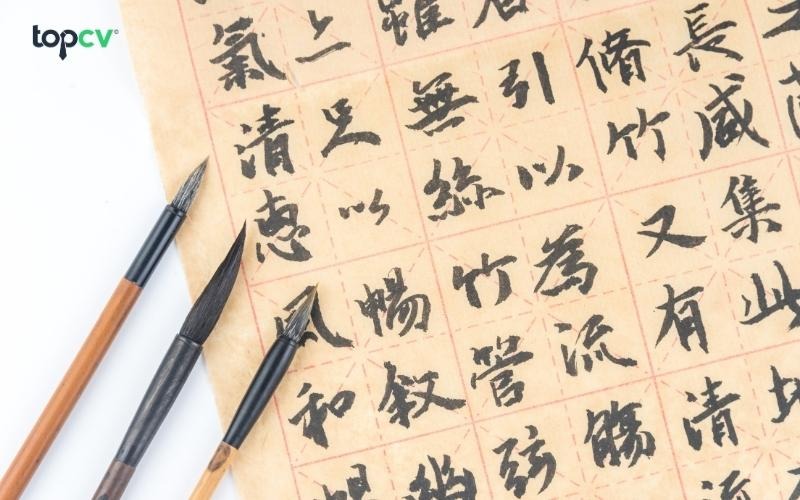 topcv
長咸集此地
脩竹又有清流
引以為流觴
雖無絲竹管弦
亦足以暢叙幽
氣清惠風和暢